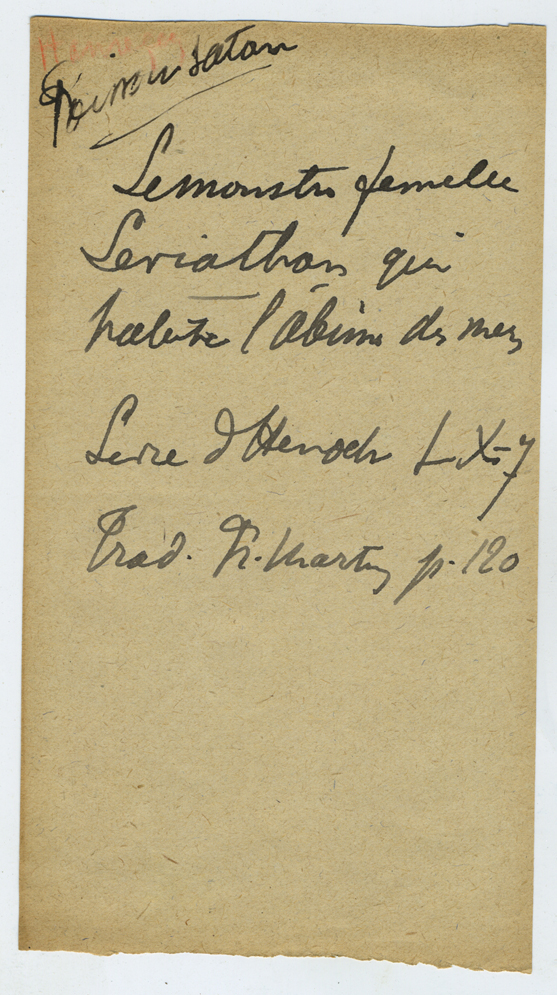 Démon Satan
Le monstre femelle
Leviathan qui
habite l'Abime des mers
Livre d'Henoch LX-7
Trad. Fr. Martin p. 120